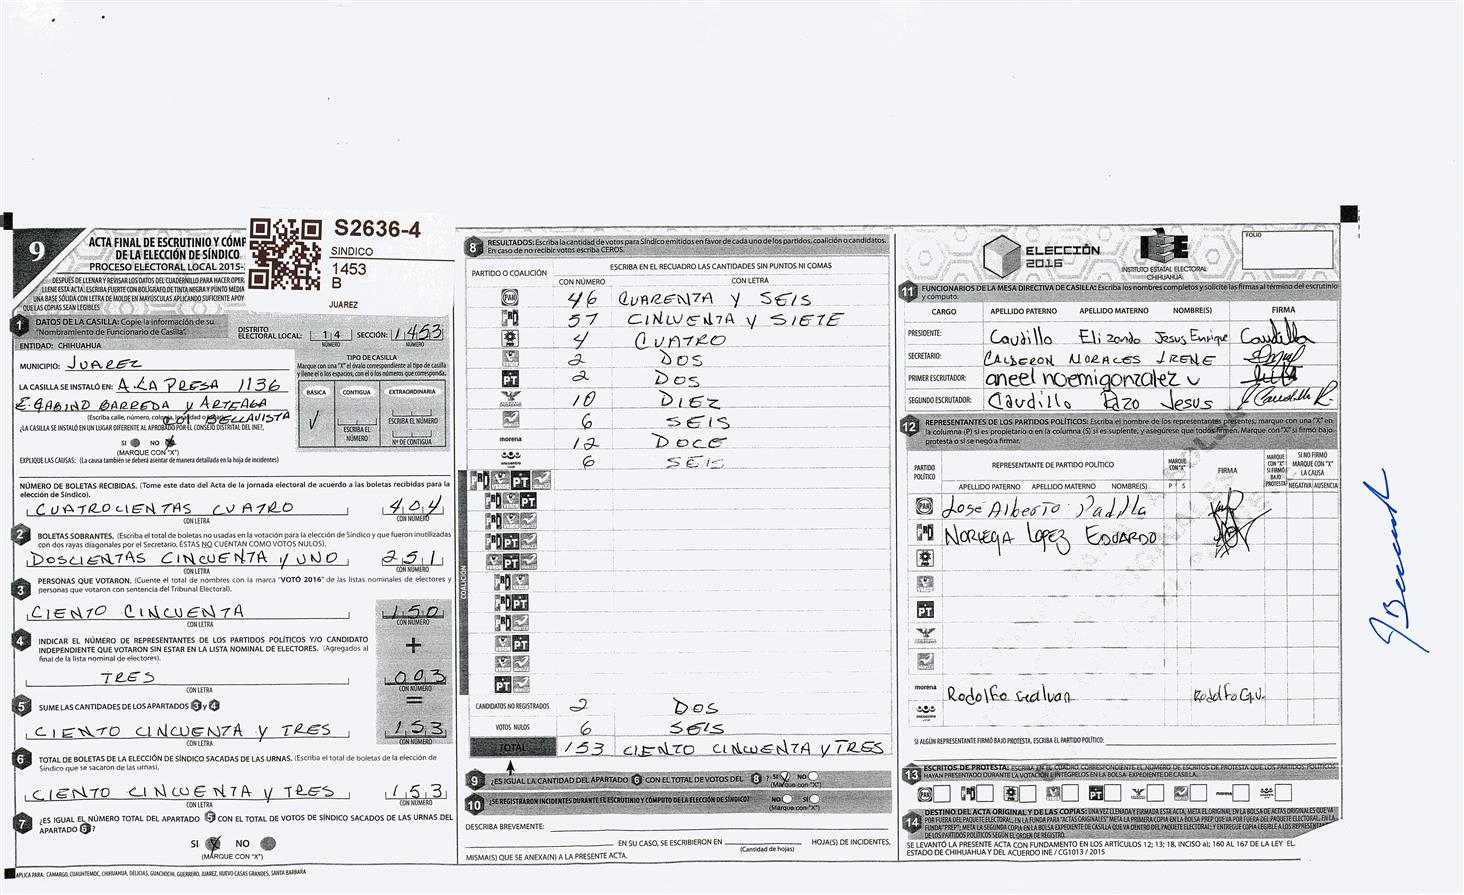 9
ACTA FINAL DE ESCRUTINIO Y CÓMP
DE LA ELECCIÓN DE SÍNDICO
PROCESO ELECTORAL LOCAL 2015-
DESPUÉS DE LLENAR Y REVISAR LOS DATOS DEL CUADERNILLO PARA HACER OPER
LLENE ESTA ACTA: ESCRIBA FUERTE CON BOLÍGRAFO DE TINTA NEGRA Y PUNTO MEDIA
UNA BASE SÓLIDA CON LETRA DE MOLDE EN MAYÚSCULAS APLICANDO SUFICIENTE APOY
QUE LAS COPIAS SEAN LEGIBLES
S2636-4
SINDICO
1453
B
JUAREZ
1 DATOS DE LA CASILLA: Copie la información de su
"Nombramiento de Funcionario de Casilla".
DISTRITO
ELECTORAL LOCAL: 14 SECCIÓN: 1453
NÚMERO NÚMERO
ENTIDAD: CHIHUAHUA
MUNICIPIO: JUAREZ
LA CASILLA SE INSTALÓ EN: A. LA PRESA 1136
E. GABINO BARREDA y ARTEAGA
COL BELLAVISTA
¿LA CASILLA SE INSTALÓ EN UN LUGAR DIFERENTE AL APROBADO POR EL CONSEJO DISTRITAL DEL INE?,
SI NO
(MARQUE CON "X")
EXPLIQUE LAS CAUSAS: (La causa también se deberá asentar de manera detallada en la hoja de incidentes)
TIPO DE CASILLA
Marque con una "X" el óvalo correspondiente al tipo de casilla
y llene el o los espacios, con el o los números que corresponda.
BÁSICA CONTIGUA EXTRAORDINARIA
ESCRIBA EL NÚMERO
ESCRIBA EL NÚMERO
Nº DE CONTIGUA
NÚMERO DE BOLETAS RECIBIDAS. (Tome este dato del Acta de la jornada electoral de acuerdo a las boletas recibidas para la
elección de Síndico).
CUATROCIENTAS CUATRO 404
CON LETRA CON NÚMERO
2 BOLETAS SOBRANTES. (Escriba el total de boletas no usadas en la votación para la elección de Síndico y que fueron inutilizadas
con dos rayas diagonales por el Secretario, ÉSTAS NO CUENTAN COMO VOTOS NULOS).
DOSCIENTAS CINCUENTA y UNO 251
CON LETRA CON NÚMERO
3 PERSONAS QUE VOTARON. (Cuente el total de nombres con la marca "VOTÓ 2016" de las listas nominales de electores y
personas que votaron con sentencia del Tribunal Electoral).
CIENTO CINCUENTA 150
CON LETRA CON NÚMERO
+
4 INDICAR EL NÚMERO DE REPRESENTANTES DE LOS PARTIDOS POLÍTICOS Y/O CANDIDATO
INDEPENDIENTE QUE VOTARON SIN ESTAR EN LA LISTA NOMINAL DE ELECTORES. (Agregados al
final de la lista nominal de electores).
TRES 003
CON LETRA CON NÚMERO
=
5 SUME LAS CANTIDADES DE LOS APARTADOS 3 y 4
CIENTO CINCUENTA y TRES 153
CON LETRA CON NÚMERO
6 TOTAL DE BOLETAS DE LA ELECCIÓN DE SÍNDICO SACADAS DE LAS URNAS. (Escriba el total de boletas de la elección de
Síndico que se sacaron de las urnas).
CIENTO CINCUENTA y TRES 153
CON LETRA CON NÚMERO
7 ¿ES IGUAL EL NÚMERO TOTAL DEL APARTADO 5 CON EL TOTAL DE VOTOS DE SÍNDICO SACADOS DE LAS URNAS DEL
APARTADO 6?
SI NO
(MARQUE CON "X")
APLICA PARA: CAMARGO, CUAUHTEMOC, CHIHUAHUA, DELICIAS, GUACHOCHI, GUERRERO, JUAREZ, NUEVO CASAS GRANDES, SANTA BARBARA
8 RESULTADOS: Escriba la cantidad de votos para Síndico emitidos en favor de cada uno de los partidos, coalición o candidatos.
En caso de no recibir votos escriba CEROS.
PARTIDO O COALICIÓN ESCRIBA EN EL RECUADRO LAS CANTIDADES SIN PUNTOS NI COMAS
CON NÚMERO CON LETRA
PAN 46 CUARENTA y SEIS
PRI 57 CINCUENTA y SIETE
PRD 4 CUATRO
2 DOS
PT 2 DOS
10 DIEZ
6 SEIS
morena 12 DOCE
encuentro social 6 SEIS
COALICIÓN
CANDIDATOS NO REGISTRADOS 2 DOS
VOTOS NULOS 6 SEIS
TOTAL 153 CIENTO CINCUENTA y TRES
9 ¿ES IGUAL LA CANTIDAD DEL APARTADO 6 CON EL TOTAL DE VOTOS DEL 8? SI NO
(Marque con "X")
10 ¿SE REGISTRARON INCIDENTES DURANTE EL ESCRUTINIO Y CÓMPUTO DE LA ELECCIÓN DE SÍNDICO? NO SI
(Marque con "X")
DESCRIBA BREVEMENTE:
EN SU CASO, SE ESCRIBIERON EN HOJA(S) DE INCIDENTES,
(Cantidad de hojas)
MISMA(S) QUE SE ANEXA(N) A LA PRESENTE ACTA.
ELECCIÓN
2016
IEE
INSTITUTO ESTATAL ELECTORAL
CHIHUAHUA
FOLIO
11 FUNCIONARIOS DE LA MESA DIRECTIVA DE CASILLA: Escriba los nombres completos y solicite las firmas al término del escrutinio
y cómputo.
CARGO APELLIDO PATERNO APELLIDO MATERNO NOMBRE(S) FIRMA
PRESIDENTE: Caudillo Elizondo Jesus Enrique Caudillo
SECRETARIO: CALDERON MORALES IRENE
PRIMER ESCRUTADOR: aneel noemi gonzalez v
SEGUNDO ESCRUTADOR: Caudillo Pazo Jesus J. Caudillo R.
12 REPRESENTANTES DE LOS PARTIDOS POLÍTICOS: Escriba el nombre de los representantes presentes, marque con una "X" en
la columna (P) si es propietario o en la columna (S) si es suplente, y asegúrese que todos firmen. Marque con "X" si firmó bajo
protesta o si se negó a firmar.
PARTIDO POLÍTICO
REPRESENTANTE DE PARTIDO POLÍTICO
MARQUE CON "X"
FIRMA
MARQUE CON "X" SI FIRMÓ BAJO PROTESTA
SI NO FIRMÓ MARQUE CON "X" LA CAUSA
APELLIDO PATERNO APELLIDO MATERNO NOMBRE(S) P S NEGATIVA AUSENCIA
PAN José Alberto Padilla
PRI NORIEGA LOPEZ EDUARDO
PRD
PT
morena Rodolfo Galvan Rodolfo G.V.
SI ALGÚN REPRESENTANTE FIRMÓ BAJO PROTESTA, ESCRIBA EL PARTIDO POLÍTICO:
13 ESCRITOS DE PROTESTA: ESCRIBA EN EL CUADRO CORRESPONDIENTE EL NÚMERO DE ESCRITOS DE PROTESTA QUE LOS PARTIDOS POLÍTICOS
HAYAN PRESENTADO DURANTE LA VOTACIÓN E INTÉGRELOS EN LA BOLSA EXPEDIENTE DE CASILLA.
14 DESTINO DEL ACTA ORIGINAL Y DE LAS COPIAS:
SE LEVANTÓ LA PRESENTE ACTA CON FUNDAMENTO EN LOS ARTÍCULOS 12; 13; 18, INCISO a); 160 AL 167 DE LA LEY EL.
ESTADO DE CHIHUAHUA Y DEL ACUERDO INE / CG1013 / 2015